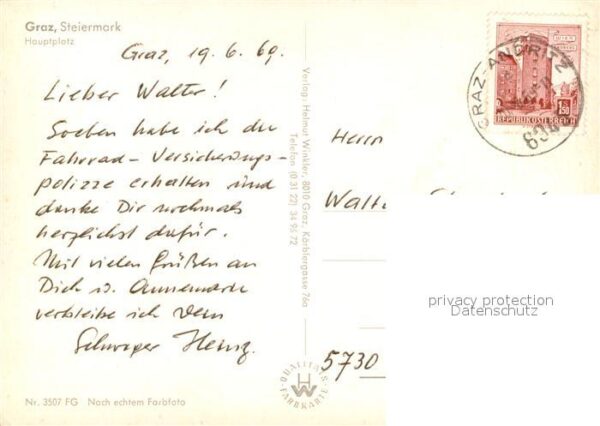 Graz, Steiermark
Hauptplatz
Graz, 19. 6. 69.
Lieber Walter!
Soeben habe ich die
Fahrrad-Versicherungs-
polizze erhalten und
danke Dir nochmals
herzlichst dafür.
Mit vielen Grüßen an
Dich u. Annemarie
verbleibe ich Dein
Schwager Heinz.
Nr. 3507 FG Nach echtem Farbfoto
Verlag: Helmut Winkler, 8010 Graz, Körblergasse 76a
Telefon (0 31 22) 34 96 72
QUALITÄTS
FARBKARTE
HW
GRAZ-ANDRITZ
1.50
REPUBLIK ÖSTERREICH
Herrn
Walte
5730
privacy protection
Datenschutz